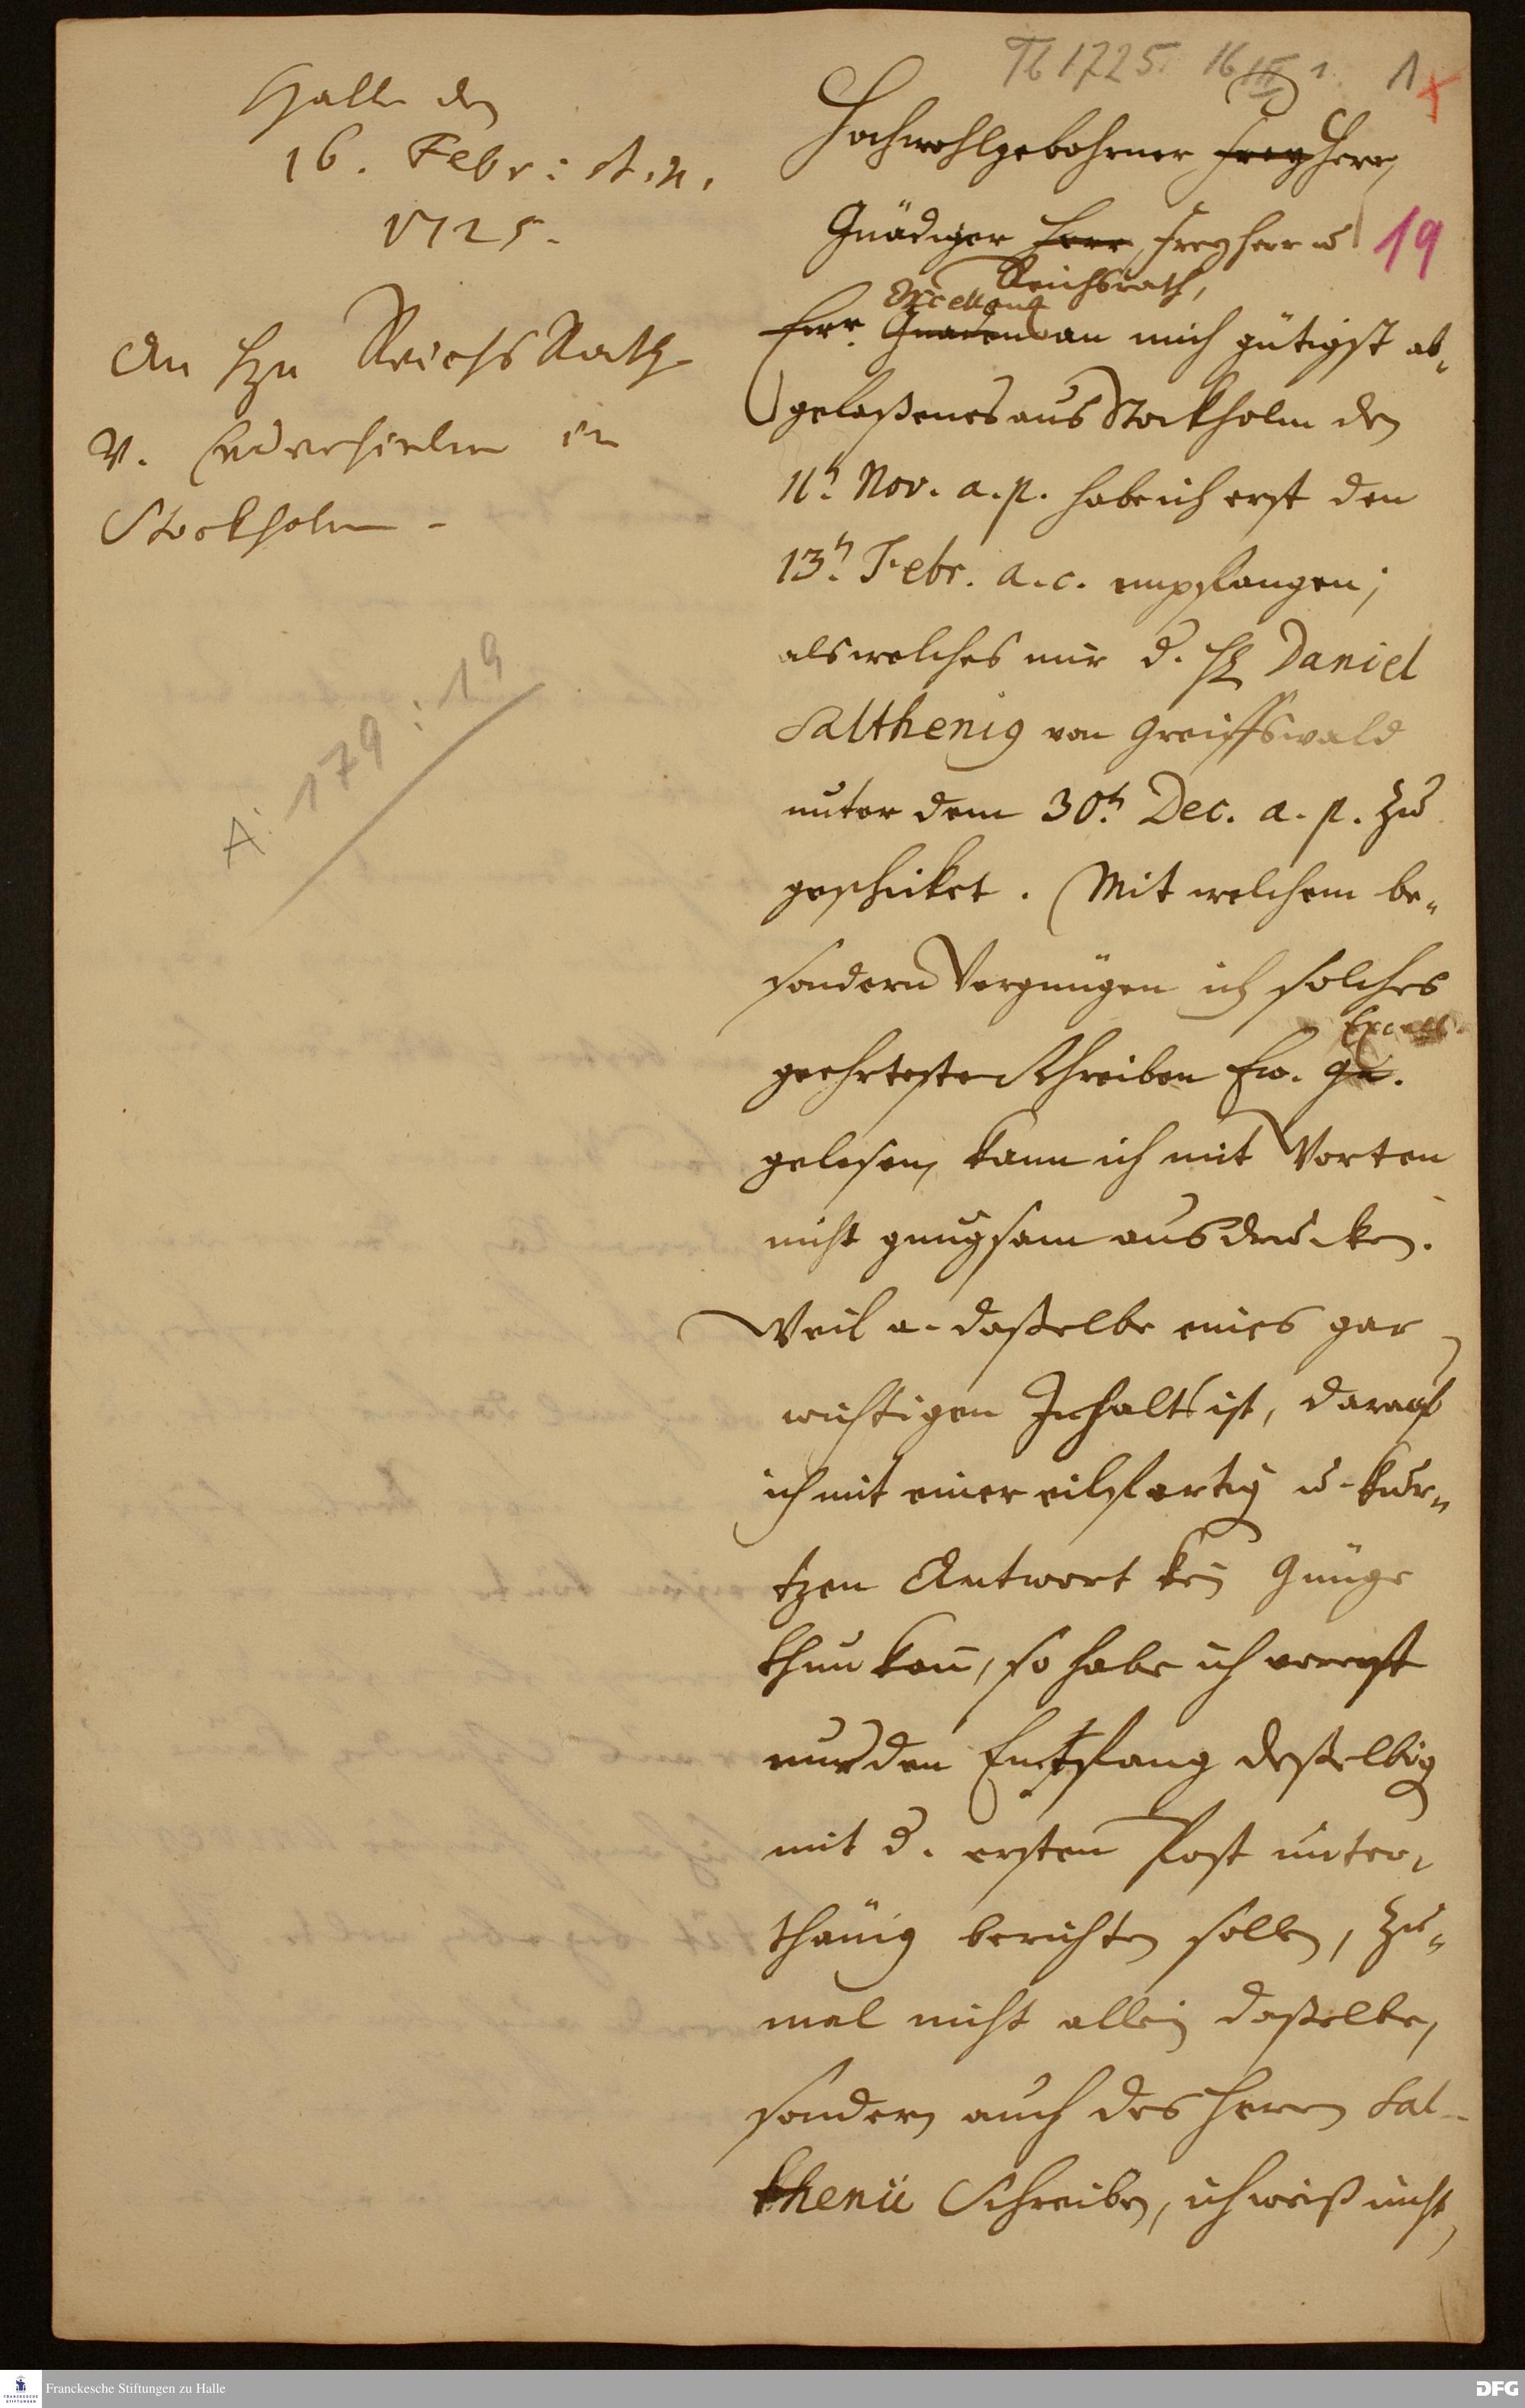 Halle den
16. Febr: st. n.
1725.
An Hn ReichsRath
v. Cedercreutz in
Stockholm.
A: 179 : 19
Tb 1725. 16 III 1. 1
19
Hochwohlgebohrner Frey Herr,
Gnädiger Herr, Freyherr u
Reichsrath,
Excellentz
Ewr. Gnaden an mich gütigst ab-
gelaßenes aus Stockholm den
11t. Nov. a. p. habe ich erst den
13t. Febr. a. c. empfangen;
als welches mir d. H Daniel
Salthenig von Greiffswald
unter dem 30t. Dec. a. p. zu
geschicket. Mit welchem be-
sondern Vergnügen ich solches
Excell.
geehrteste Schreiben Ew. Gn.
gelesen, kann ich mit Worten
nicht gnugsam ausdrucken.
Weil a. daßelbe eines gar
wichtigen Inhalts ist, darauf
ich mit einer eilfertig u. kur-
tzen Antwort kein Gnüge
thun kan, so habe ich vorerst
nur den Entpfang deßelbig
mit d. ersten Post unter-
thänig berichten sollen, zu-
mal nicht allein daßelbe,
sondern auch des Herrn Sal-
thenii Schreiben, ich weiß nicht,
Franckesche Stiftungen zu Halle
DFG